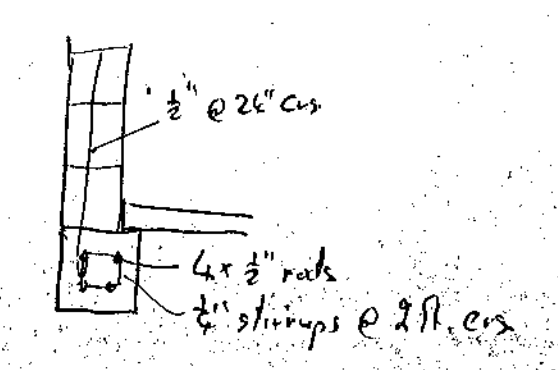 ½" @ 24" Crs.
4 x ½" rods
¼" stirrups @ 2 ft. crs